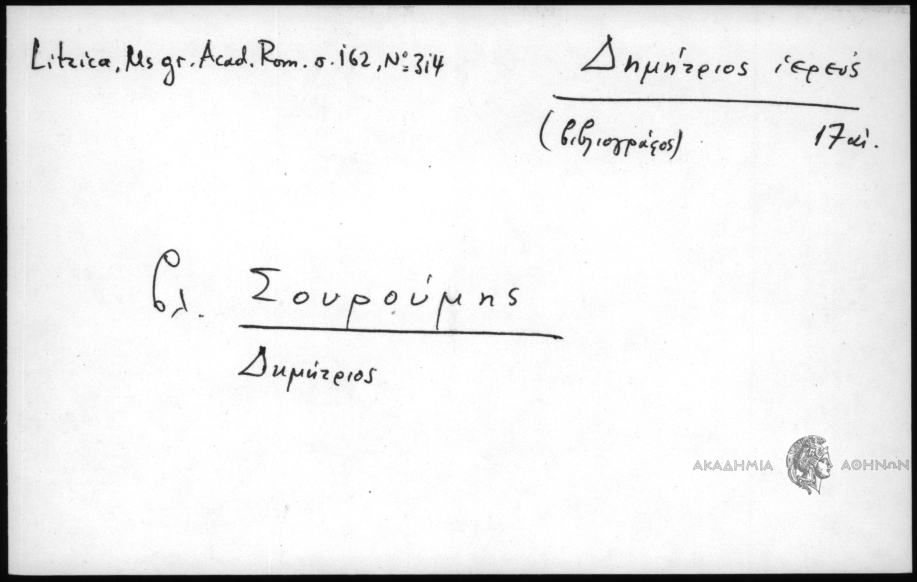 Litzica, Ms gr. Acad. Rom. σ. 162, Nº 314
Δημήτριος ἱερεύς
(βιβλιογράφος) 17 αἰ.
βλ. Σουρούμης
Δημήτριος
ΑΚΑΔΗΜΙΑ ΑΘΗΝΩΝ